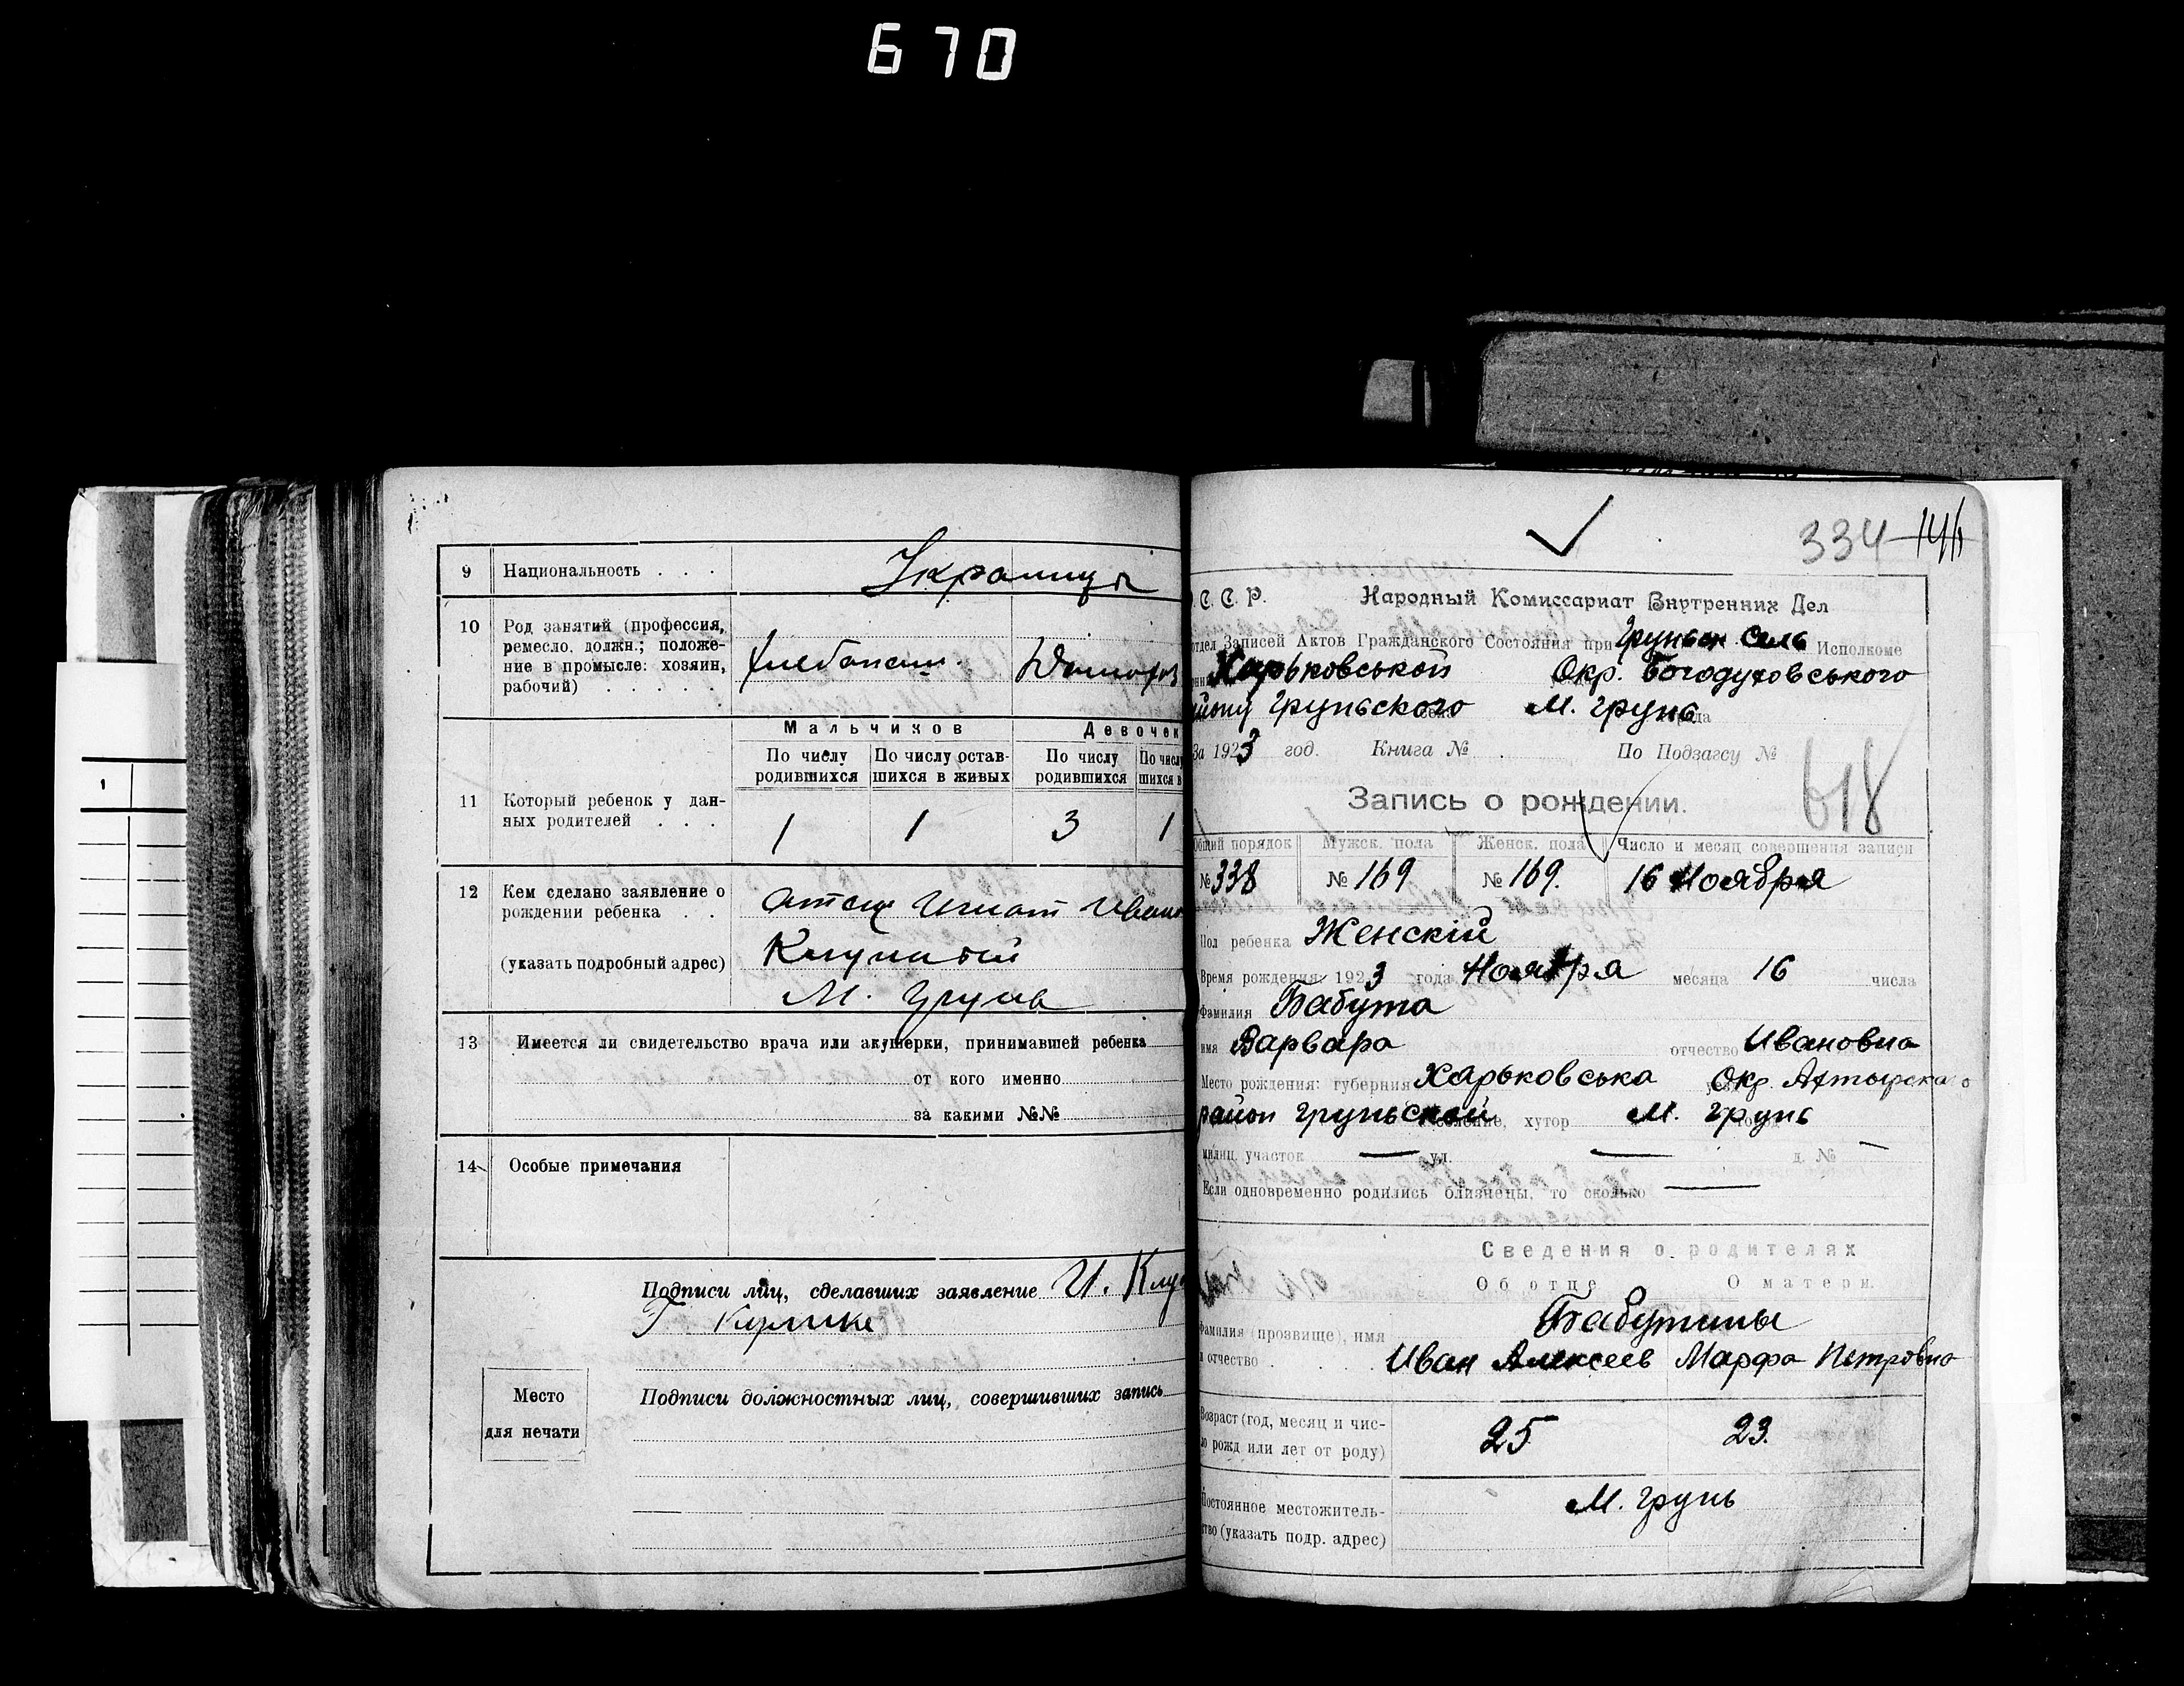 670
9 Национальность . . . Украинцы
10 Род занятий (профессия,
ремесло, должн.; положе-
ние в промысле: хозяин,
рабочий) . . . . .
хлебопаш. Домохоз
Мальчиков Девочек
По числу родившихся По числу остав-шихся в живых По числу родившихся По числу шихся в
11 Который ребенок у дан-
ных родителей . . .
1 1 3 1
12 Кем сделано заявление о
рождении ребенка . .
(указать подробный адрес)
отец Игнат Ивано
М. Грунь
13 Имеется ли свидетельство врача или акушерки, принимавшей ребенка
от кого именно
за какими №№
14 Особые примечания
Подписи лиц, сделавших заявление И.
Г.
Место
для печати
Подписи должностных лиц, совершивших запись
334 146
С. С. Р. Народный Комиссариат Внутренних Дел
отдел Записей Актов Гражданского Состояния при Груньск Селъ Исполкоме
Харьковськой Окр. Богодуховського
району Груньского М. Грунь
За 1923 год. Книга № По Подзагсу №
618
Запись о рождении.
Общий порядок Мужск. пола Женск. пола Число и месяц совершения записи
№ 338 № 169 № 169. 16 Ноября
Пол ребенка Женскій
Время рождения 1923 года Ноября месяца 16 числа
Фамилия Бабута
имя Варвара отчество Ивановна
Место рождения: губерния Харьковська Окр. Ахтырска
район Груньской селение, хутор М. Грунь
милиц. участок — ул. — д. № —
Если одновременно родились близнецы, то сколько —
Сведения о родителях
Об отце О матери.
Бабутины
Фамилия (прозвище), имя
и отчество . . . Иван Алексеев Марфа Петровна
Возраст (год, месяц и чис-
ло рожд или лет от роду)
25 23.
Постоянное местожитель-
ство (указать подр. адрес)
М. Грунь